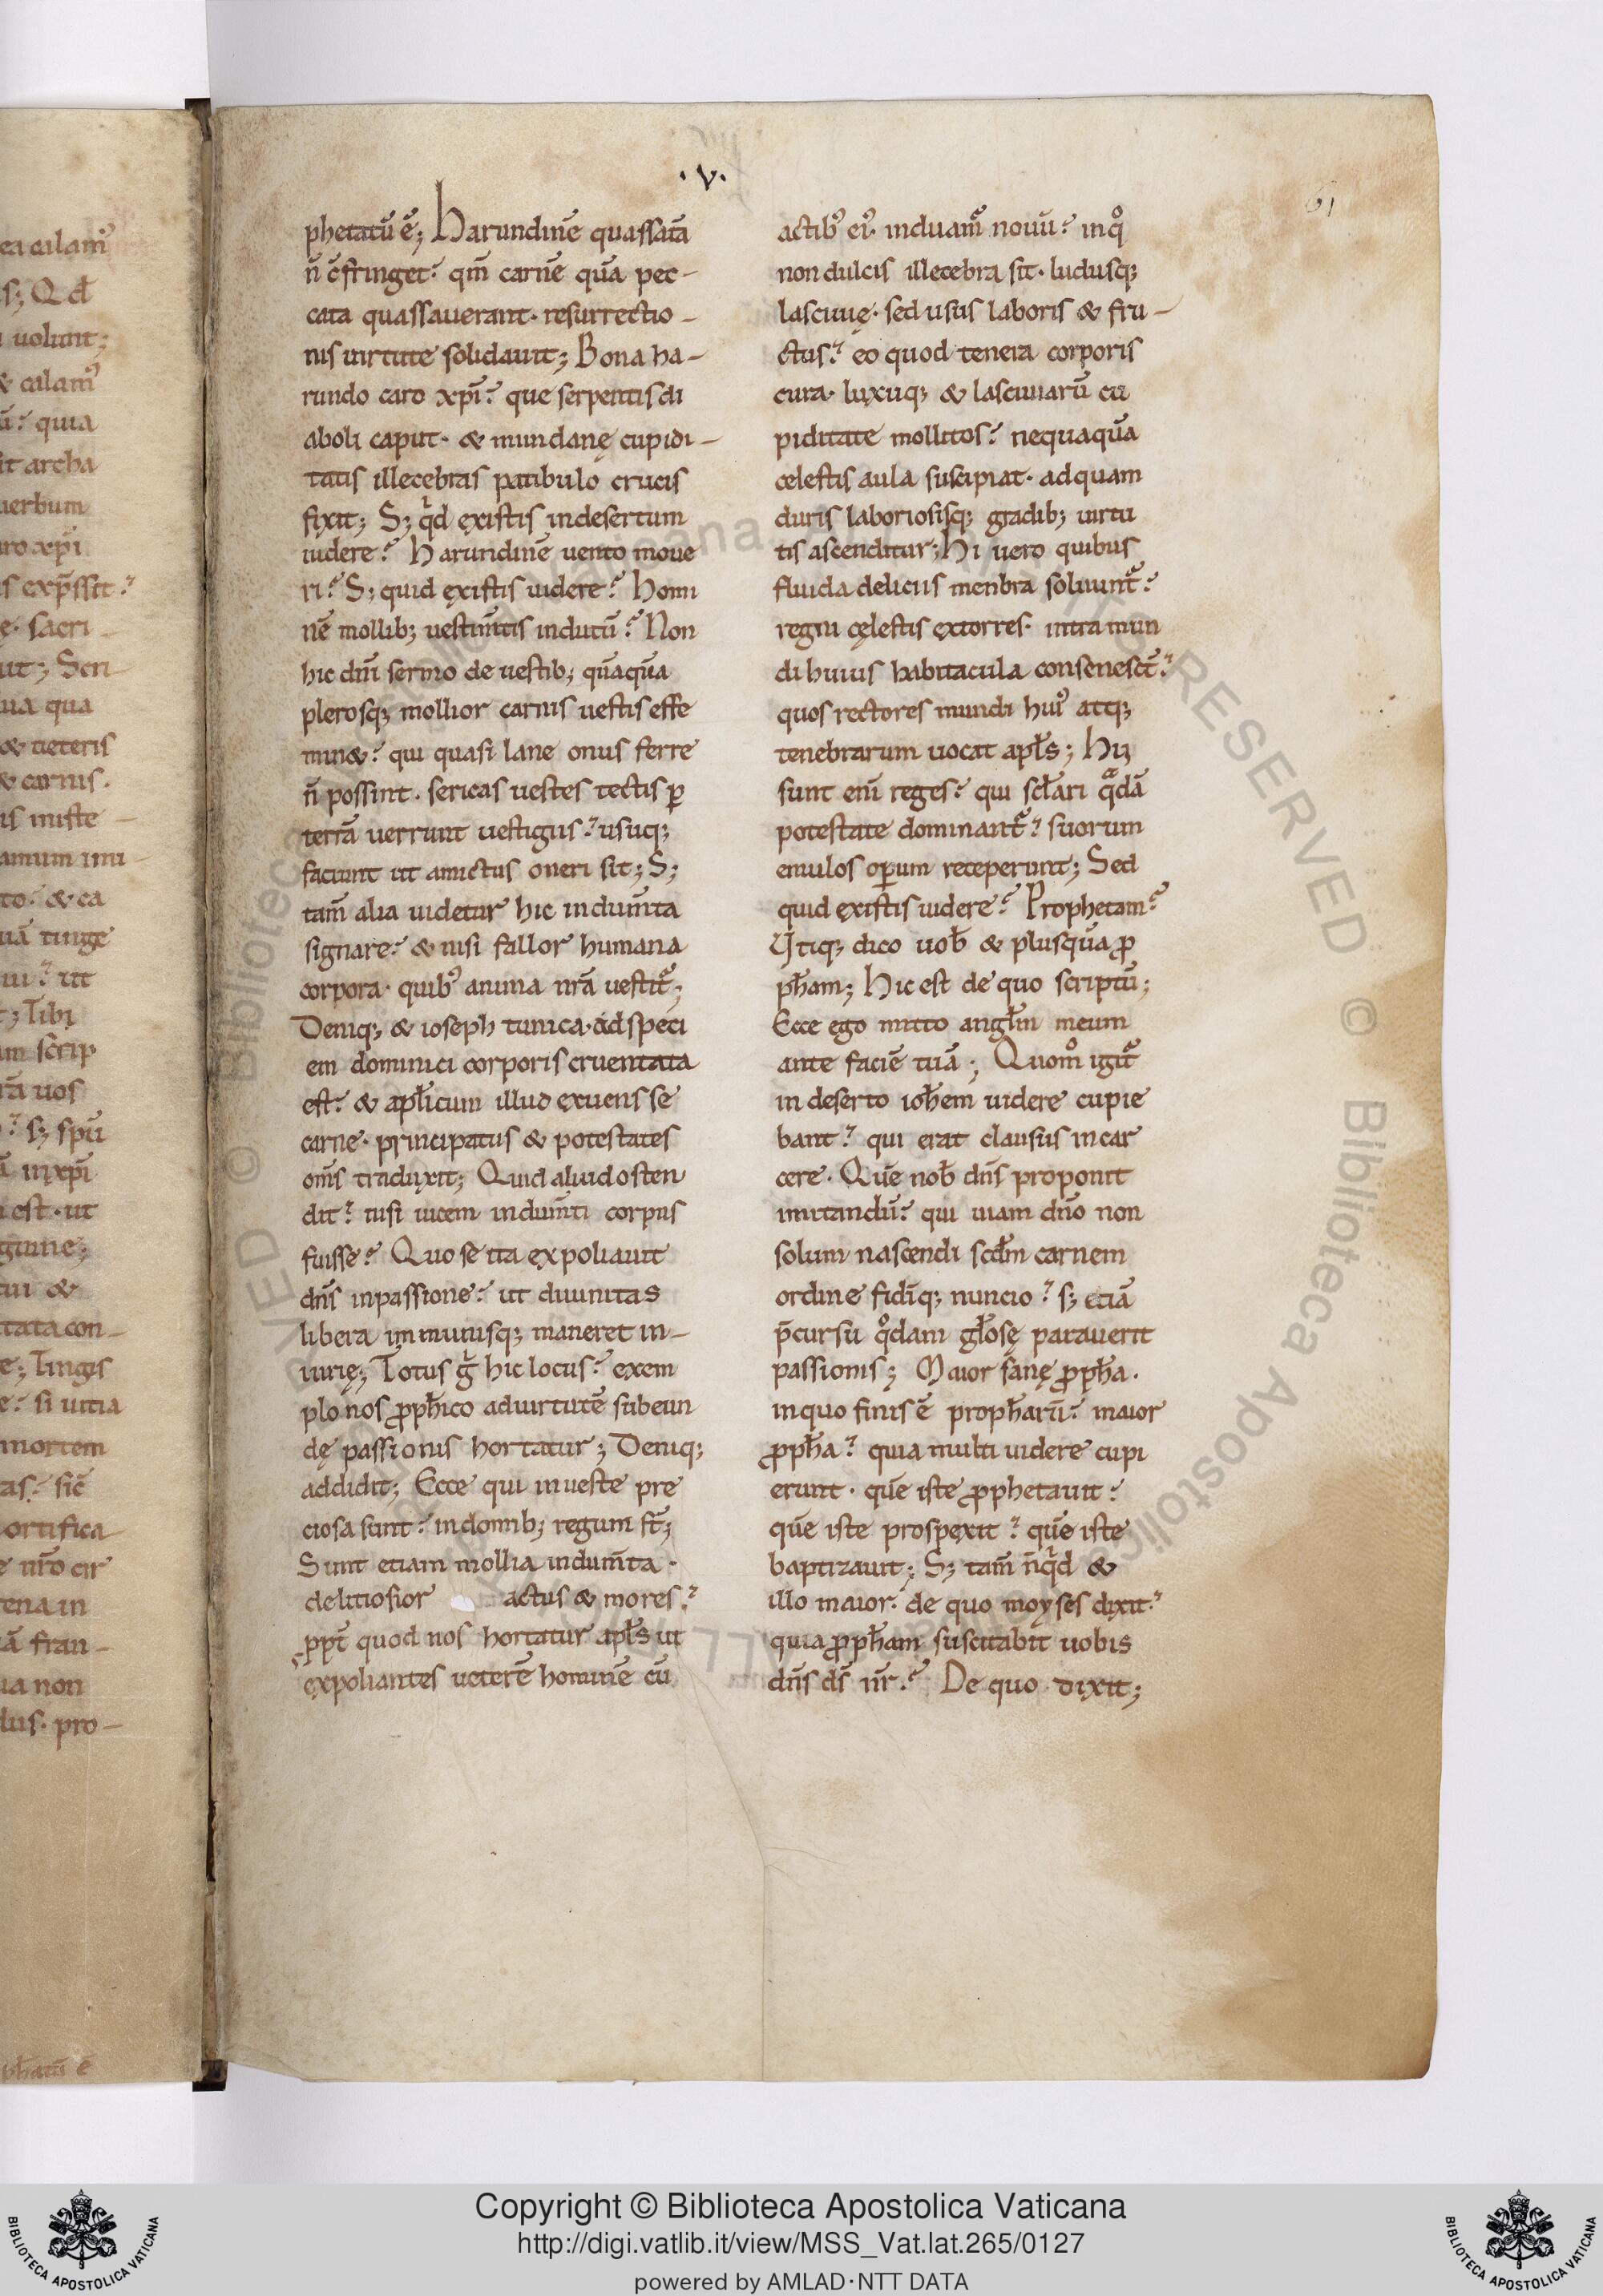 .v.
61
phetatū ē; Harundinē quassatā
n̄ c̄fringet? qm̄ carnē quā pec-
cata quassauerant· resurrectio-
nis uirtute solidauit; Bona ha-
rundo caro xpi̅? que serpentis di
aboli caput· & mundanę cupidi-
tatis illecebras patibulo crucis
fixit; S; qͥd existis indesertum
uidere? Harundinē uento moue
ri? S; quid existis uidere? Homi
nē mollib; uestim̄tis indutū? Non
hic dn̄i sermo de uestib; quāquā
plerosq; mollior carnis uestis effe
min&? qui quasi lane onus ferre
n̄ possint· sericas uestes tectis ꝑ
terrā uerrunt uestigiis? usuq;
faciunt ut amictus oneri sit; S;
tam̄ alia uidetur hic indum̄ta
signare? & nisi fallor humana
corpora· quibꝰ anima nr̄a uestit᷑;
Deniq; & ioseph tunica· ad speci
em dominici corporis cruentata
est? & apl̄icum illud exuens se
carne· principatus & potestates
om̄s traduxit; Quid aliud osten
dit? nisi uicem indum̄ti corpus
fuisse? Quo se ita expoliauit
dn̄s inpassione? ut diuinitas
libera immunisq; maneret in-
iurię; Totus gͥ hic locus? exem
plo nos ꝓph̄ico aduirtutē subeun
dę passionis hortatur; Deniq;
addidit; Ecce qui inueste pre
ciosa sunt? indomib; regum st̄;
Sunt etiam mollia indum̄ta·
delitiosior actus & mores?
ꝓpt̄ quod nos hortatur apl̄s ut
expoliantes ueterē hominē cū
actibꝰ eiꝰ· induam᷑ nouū? inqͦ
non dulcis illecebra sit· ludusq;
lasciuię· sed usus laboris & fru-
ctus? eo quod tenera corporis
cura· luxuq; & lasciuiarū cu
piditate mollitos? nequaquā
celestis aula suscipiat· adquam
duris laboriosisq; gradib; uirtu
tis ascenditur; Hi uero quibus
fluida deliciis menbra soluunt᷑?
regni cęlestis extorres· intra mun
di huius habitacula consenesct̄?
quos rectores mundi huiꝰ atq;
tenebrarum uocat apl̄s; Hii
sunt enī reges? qui scl̄ari qͣdā
potestate dominant᷑? suorum
emulos oꝑum receperunt; Sed
quid existis uidere? Prophetam?
Utiq; dico uob̄ & plusquā ꝓ
ph̄am; Hic est de quo scriptū;
Ecce ego mitto angl̄m meum
ante faciē tuā; Quomͦ igit᷑
in deserto ioh̄em uidere cupie
bant? qui erat clausus incar
cere· Quē nob̄ dn̄s proponit
imitandū? qui uiam dn̄o non
solum nascendi scd̄m carnem
ordine fidīq; nuncio? s; etiā
p̄cursu qͦdam gl̄osę parauerit
passionis; Maior sanę ꝓph̄a·
inquo finis ē proph̄arū? maior
ꝓph̄a? quia multi uidere cupi
erunt· quē iste ꝓphetauit?
quē iste prospexit? quē iste
baptizauit; S; tam̄ n̄qͥd &
illo maior? de quo moyses dixit?
quia ꝓph̄am suscitabit uobis
dn̄s ds̄ nr̄? De quo dixit;
ea calam᷑
s; Qd̄
uolunt;
& calamꝰ
ū? quia
it archa
uerbum
uro xpi̅
is exp̄ssit?
ę· sacri-
ut; Scri-
ua qua
& ueteris
& carnis·
is miste-
amum imi-
to· & ca
uā tinge
ni? ut
; Tibi
m scrip
rā uos
? s; spū
ā inxpi̅
est· ut
gume;
tui &
ttata con-
e; Tingis
e? si uitia
mortem
as? sic̄
ortifica
e nr̄o cir
ena in
ā fran-
ua non
dus· pro-
phatū ē
Copyright © Biblioteca Apostolica Vaticana
http://digi.vatlib.it/view/MSS_Vat.lat.265/0127
powered by AMLAD·NTT DATA
BIBLIOTECA APOSTOLICA VATICANA
BIBLIOTECA APOSTOLICA VATICANA